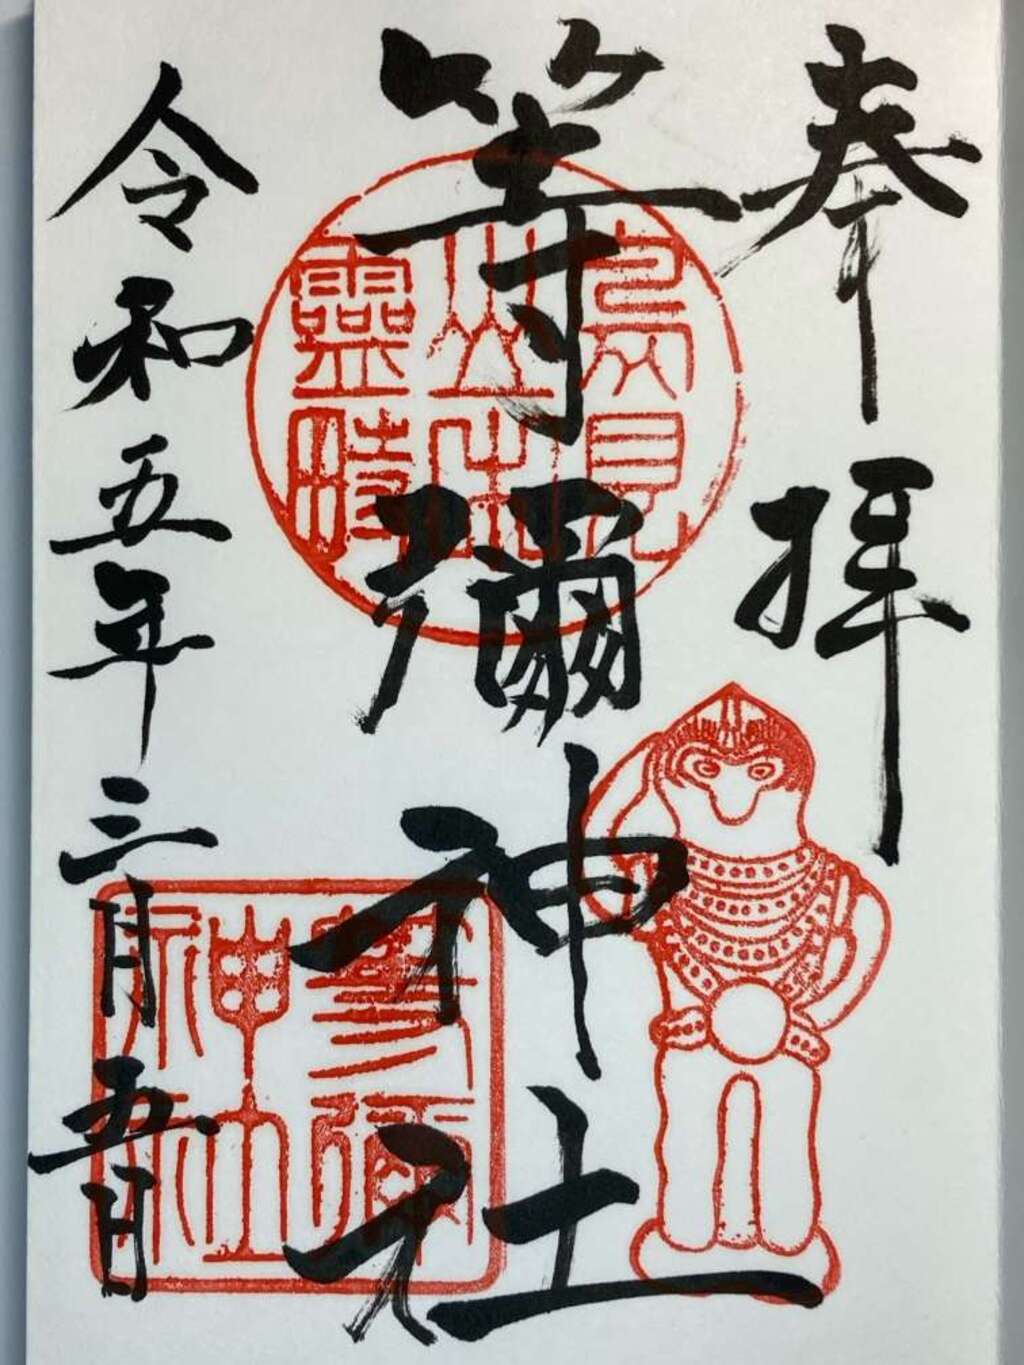 奉拝
等彌神社
令和五年三月五日
鳥見山中霊畤
等彌神社